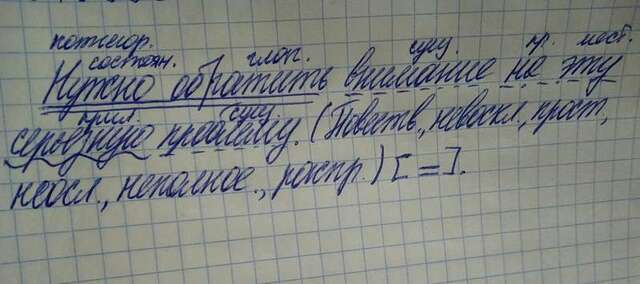 категор.
состоян. глаг. сущ. пр. мест.
Нужно обратить внимание на эту
прил. сущ.
серьёзную проблему. (Повеств., невоскл., прост.,
неосл., неполное., распр.) [=].